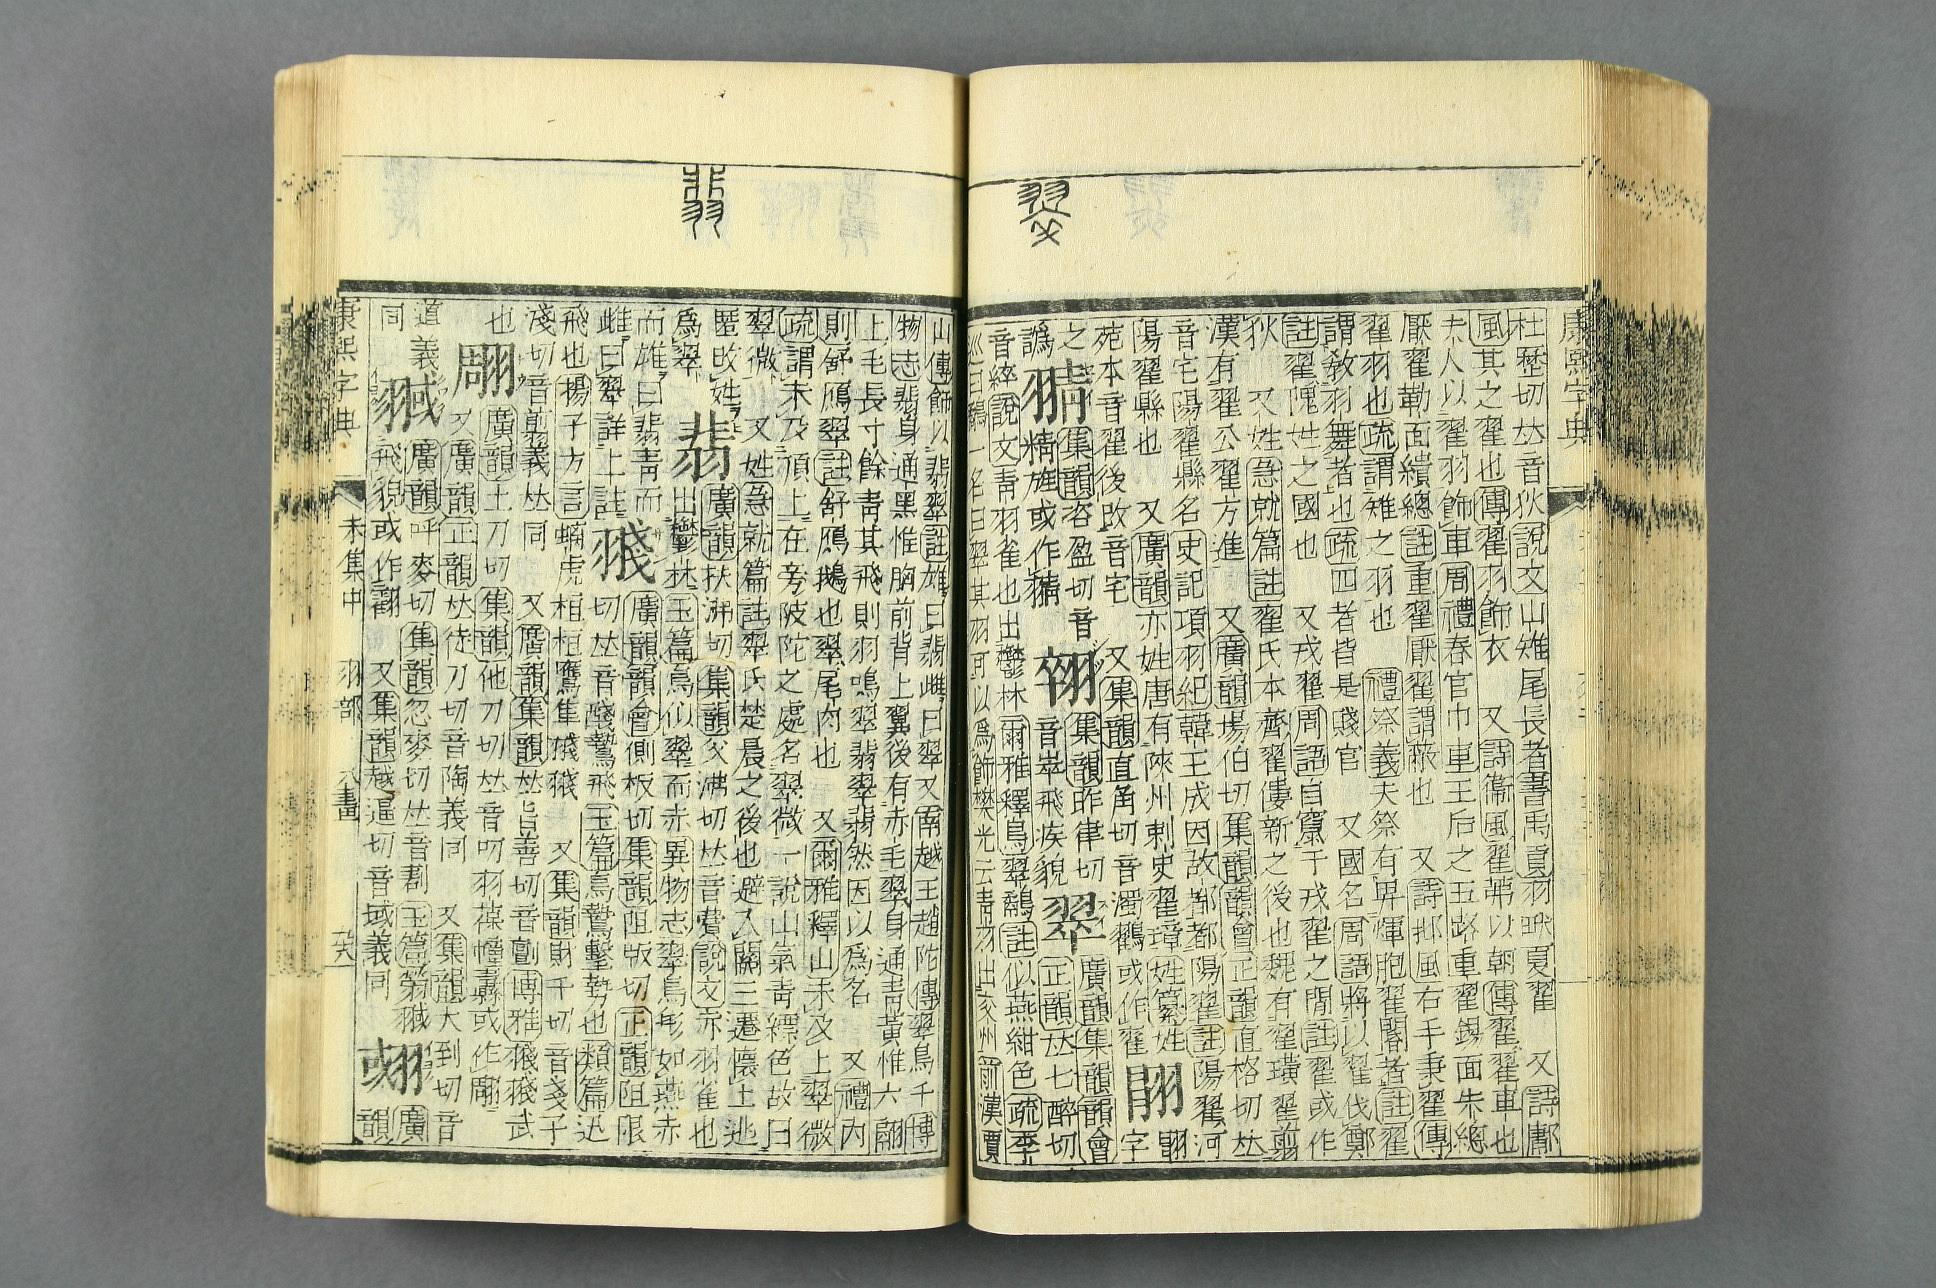 翠
康熙字典
杜歷切𠀤音狄說文山雉尾長者書禹貢羽畎夏翟 又詩鄘
風其之翟也傳翟羽飾衣 又詩衞風翟茀以朝傳翟翟車也
夫人以翟羽飾車周禮春官巾車王后之五路重翟錫面朱總
厭翟勒面繢總註重翟厭翟謂蔽也 又詩邶風右手秉翟傳
翟羽也疏謂雉之羽也 禮祭義夫祭有畀煇胞翟閽者註翟
謂敎羽舞者也疏四者皆是賤官 又國名周語將以翟伐鄭
註翟隗姓之國也 又戎翟周語自竄于戎翟之閒註翟或作
狄 又姓急就篇註翟氏本齊翟僂新之後也魏有翟璜翟翦
漢有翟公翟方進 又廣韻場伯切集韻韻會正韻直格切𠀤
音宅陽翟縣名史記項羽紀韓王成因故都都陽翟註陽翟河
陽翟縣也 又廣韻亦姓唐有陝州刺史翟璋姓纂姓
苑本音翟後改音宅 又集韻直角切音濁鸐或作翟 字
之譌 集韻咨盈切音精旌或作 翉 集韻昨律切音崒飛疾貌 翠 廣韻集韻韻會正韻𠀤七醉切
音綷說文靑羽雀也出鬱林爾雅釋鳥翠鷸註似燕紺色疏李
巡曰鷸一名曰翠其羽可以爲飾樊光云靑羽出交州前漢賈
翡
山傳飾以翡翠註雄曰翡雌曰翠又南越王趙陀傳翠鳥千博
物志翡身通黑惟胸前背上翼後有赤毛翠身通靑黃惟六翮
上毛長寸餘靑其飛則羽鳴翠翡翠翡然因以爲名 又禮內
則舒鴈翠註舒鴈鵝也翠尾肉也 又爾雅釋山未及上翠微
疏謂未及頂上在旁陂陀之處名翠微一說山氣靑縹色故曰
翠微 又姓急就篇註翠氏楚晨之後也避入關三遷懷土逃
匿改姓 翡 廣韻扶沸切集韻父沸切𠀤音費說文赤羽雀也
爲翠 出鬱林玉篇鳥似翠而赤異物志翠鳥形如燕赤
而雄曰翡靑而雌曰翠詳上註 䎒 廣韻韻會側板切集韻阻版切正韻阻限切𠀤音醆鷙飛玉篇鳥鷙擊勢也類篇迅
飛也揚子方言螭虎柤柤鷹隼䎒䎒 又集韻財千切音戔子
淺切音翦義𠀤同 又廣韻集韻𠀤旨善切音䎒博雅䎒䎒武
也 翢 廣韻土刀切集韻他刀切𠀤音叨羽葆幢纛或作翢
又廣韻正韻𠀤徒刀切音陶義同 又集韻大到切音
道義同 䎉 廣韻呼麥切集韻忽麥切𠀤音劃玉篇䎉
飛貌或作翽 又集韻越逼切音域義同 廣韻
康熙字典 未集中 羽部 八畫